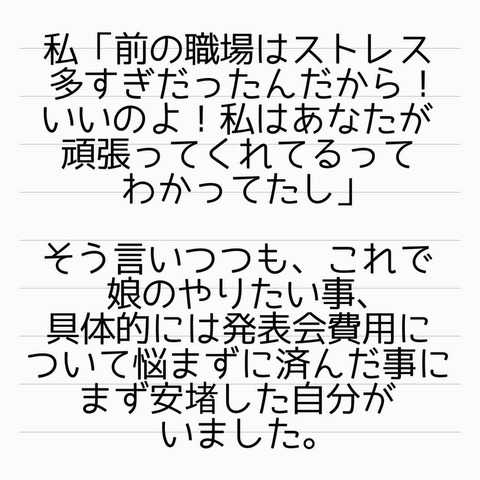 私「前の職場はストレス
多すぎだったんだから！
いいのよ！私はあなたが
頑張ってくれてるって
わかってたし」
そう言いつつも、これで
娘のやりたい事、
具体的には発表会費用に
ついて悩まずに済んだ事に
まず安堵した自分が
いました。